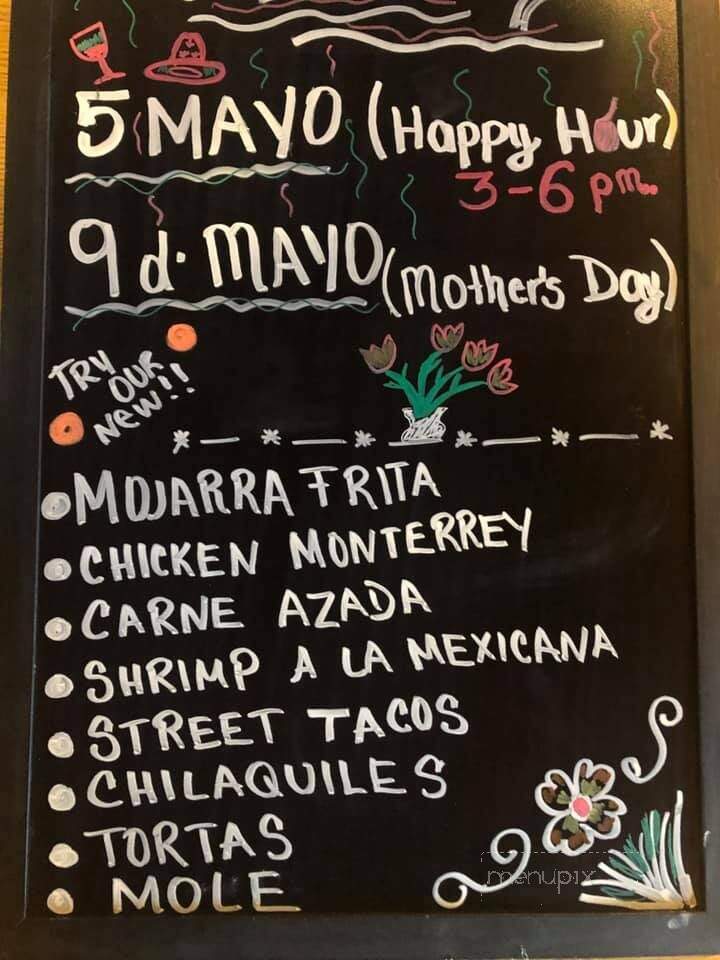 5 MAYO (Happy Hour)
3-6 pm..
9 d. MAYO (Mother's Day)
TRY
OUR
NEW!!
MOJARRA FRITA
CHICKEN MONTERREY
CARNE AZADA
SHRIMP A LA MEXICANA
STREET TACOS
CHILAQUILES
TORTAS
MOLE
menupix